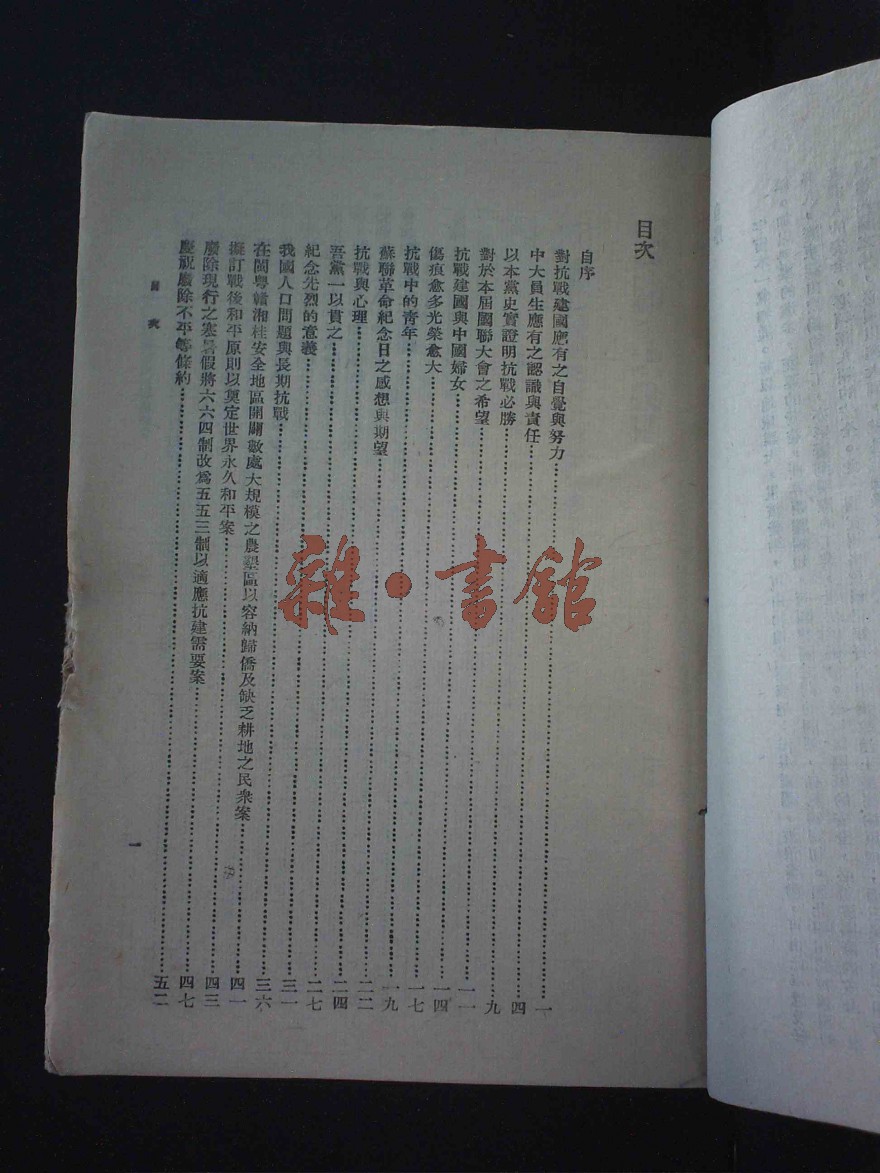 目次
自序
對抗戰建國應有之自覺與努力……一
中大員生應有之認識與責任……四
以本黨史實證明抗戰必勝……九
對於本屆國聯大會之希望……一一
抗戰建國與中國婦女……一四
傷痕愈多光榮愈大……一七
抗戰中的青年……一九
蘇聯革命紀念日之感想與期望……二二
抗戰與心理……二四
吾黨一以貫之……二七
紀念先烈的意義……三一
我國人口問題與長期抗戰……三六
在閩粵贛湘桂安全地區開闢數處大規模之農墾區以容納歸僑及缺乏耕地之民衆案……四一
擬訂戰後和平原則以奠定世界永久和平案……四三
廢除現行之寒暑假將六六四制改爲五五三制以適應抗建需要案……四七
慶祝廢除不平等條約……五二
目次
一
雜·書館